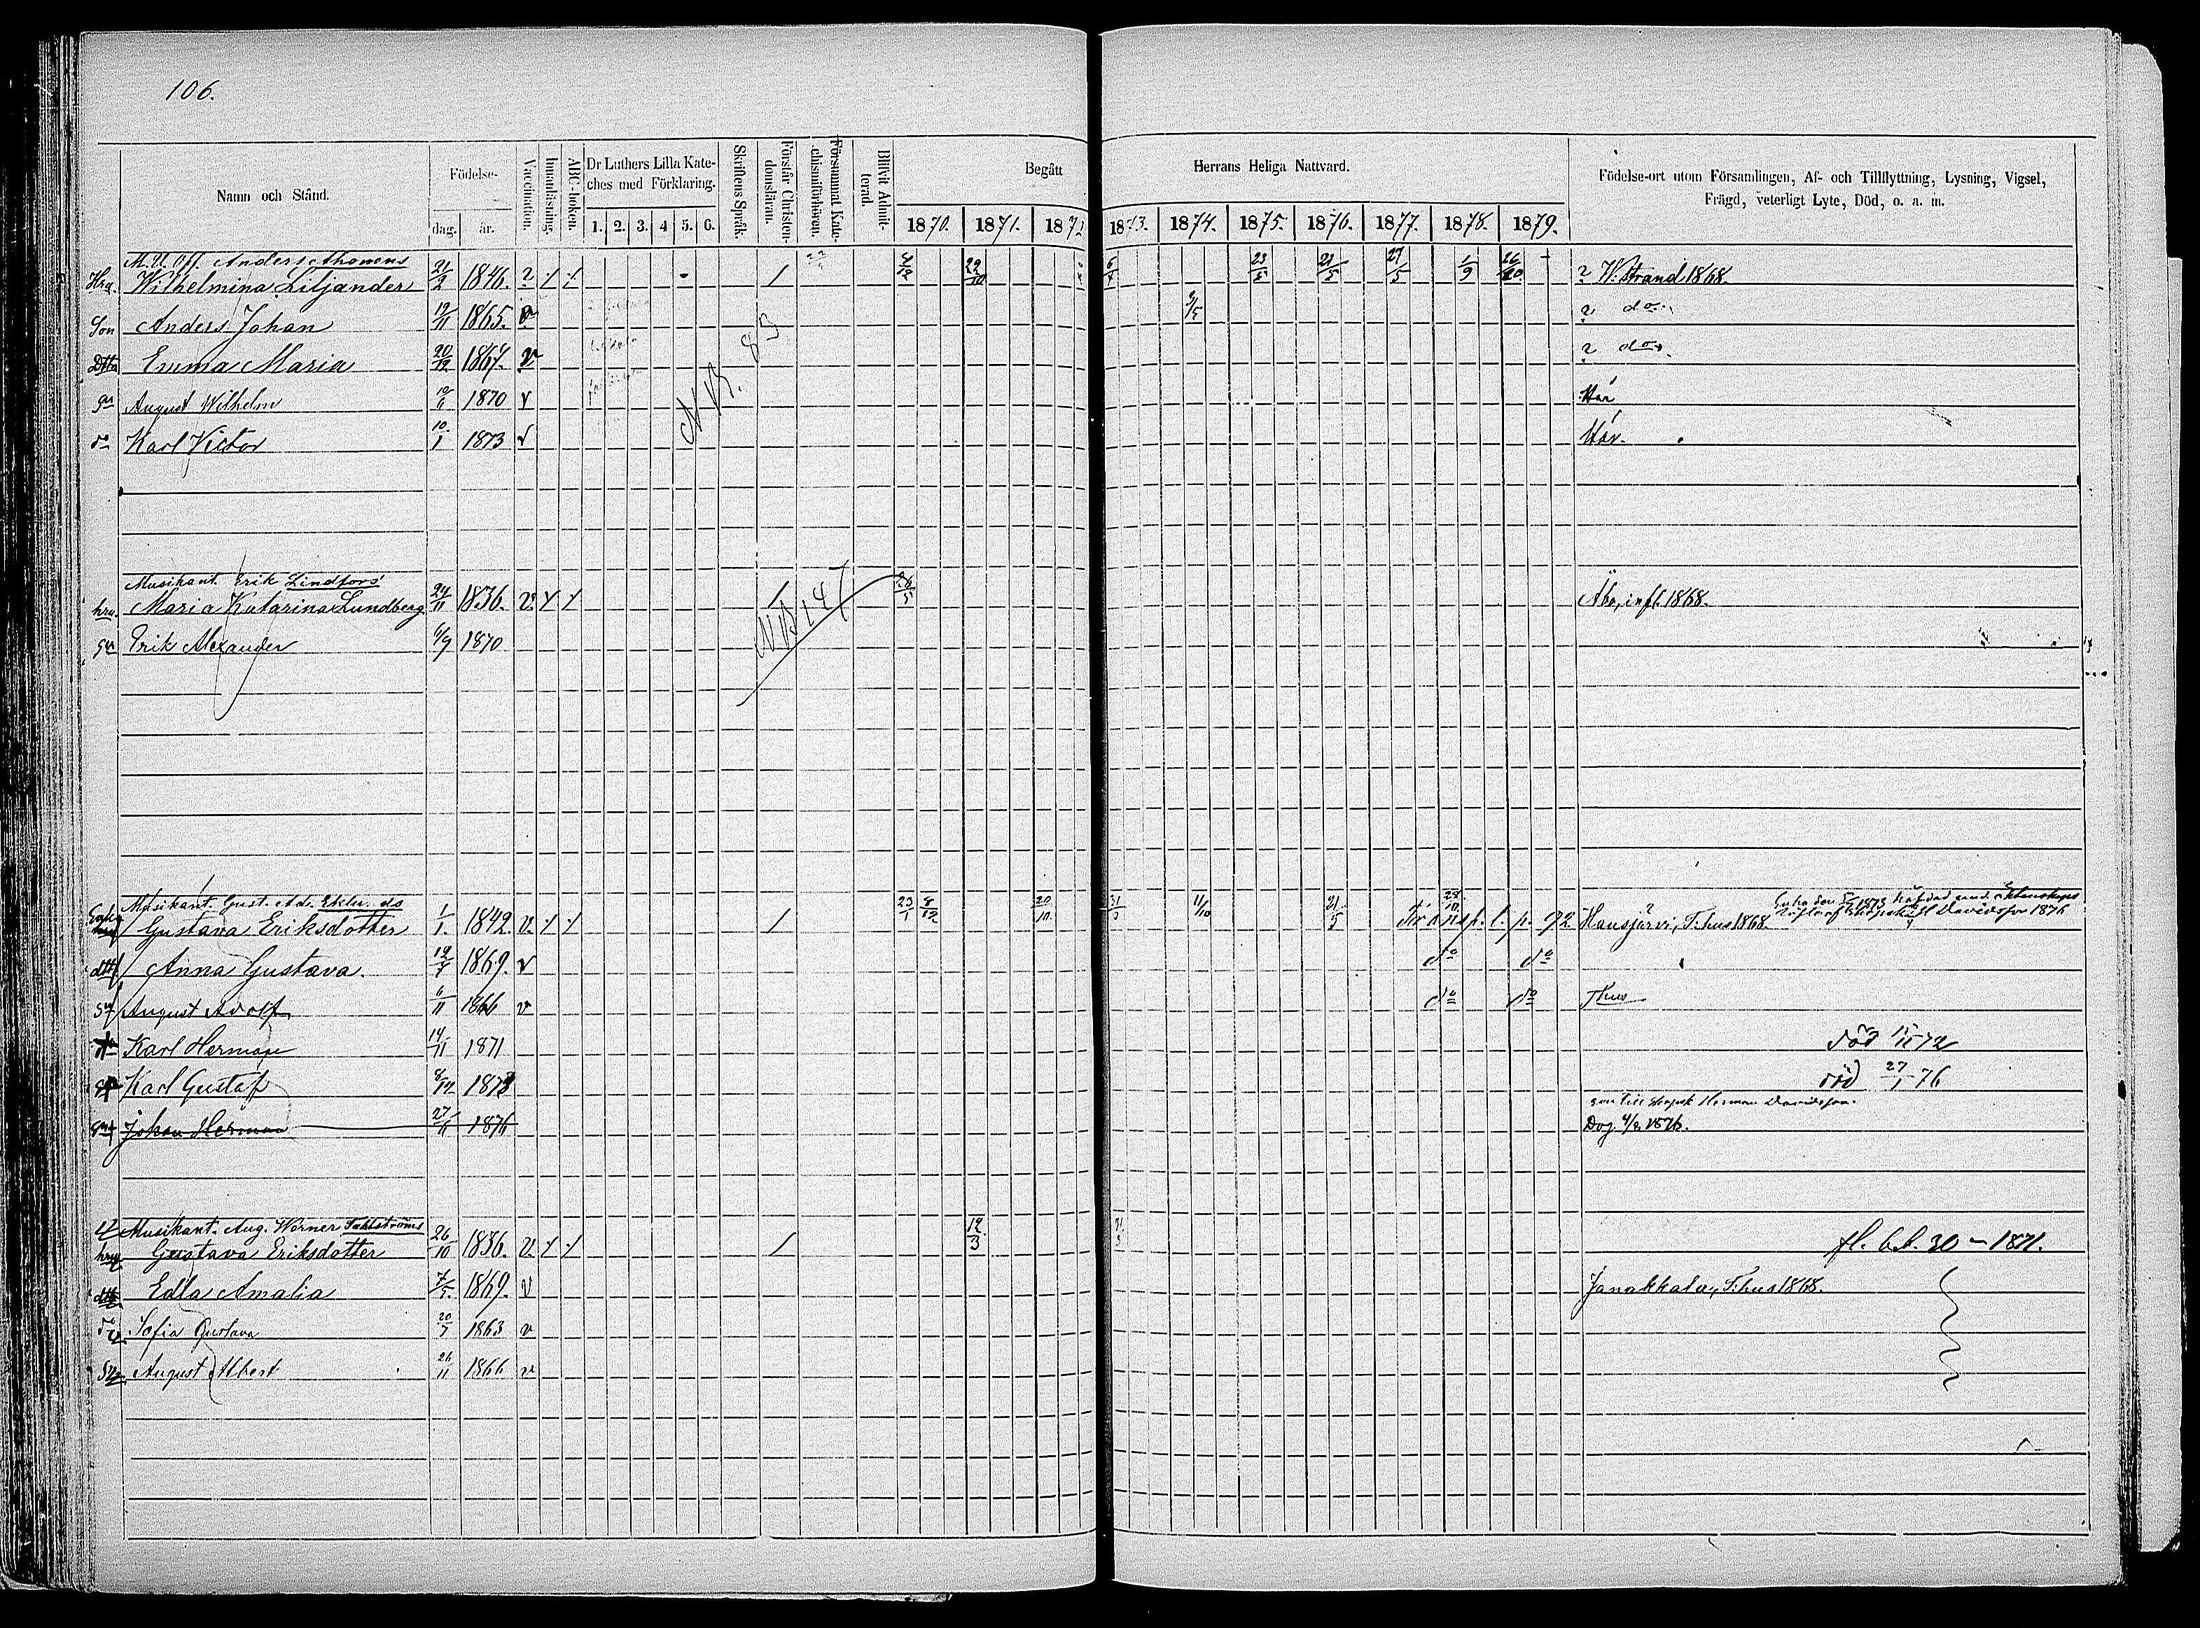 106.
Namn och Stånd.
Födelse-
dag. år.
Vaccination.
Innanläsning.
ABC-boken.
Dr Luthers Lilla Kate-
ches med Förklaring.
1. 2. 3. 4 5. 6.
Skriftens Språk.
Förstår Christen-
domsläran.
Försummat Kate-
chismiförhören.
Blifvit Admit-
terad.
Begått Herrans Heliga Nattvard.
1870. 1871. 1872 1873. 1874. 1875. 1876. 1877. 1878. 1879.
Födelse-ort utom Församlingen, Af- och Tillflyttning, Lysning, Vigsel,
Frägd, veterligt Lyte, Död, o. a. m.
M. U. Off. Anders Ahonens
Hru. Wilhelmina Liljander 21/2 1846. ? 4/12 29/10 23/5 21/5 27/5 1/9 26/10 ? W:strand 1868.
Son Anders Johan 1865. v 3/5 ? do
Dttr Emma Maria 20/12 1867. v ? do
August Wilhelm 1870 v Här
do Karl Victor 10/1 1873 v Här.
N.B. 83
Musikant. Erik Lindfors'
hru. Maria Katarina Lundberg 24/11 1836. v. Åbo, infl. 1868.
Erik Alexander 6/9 1870
NB 147
Musikant. Gust. Ad. Eklu ds
Gustava Eriksdotter 1/1. 1842. v. 23/1 8/12 20/10. 31/3 11/10 21/5 28/10 Transp. t. p. 92 Hausjärvi, T:hus 1868.
Davidsson 1876
dttr Anna Gustava. 1869. v do do
August Adolf 6/11 1866 v do do T:hus
Karl Herman 14/11 1871 död 15/11 72
Karl Gustaf 8/12 1873 död 27/1 76
Herman Davidsson.
Johan Herman 27/11 1876 Dog 4/12 1876.
Musikant. Aug. Werner Sahlströms
hru Gustava Eriksdotter 26/10 1836. v. 12/3 fl. b.b. 30 – 1871.
dttr Edla Amalia 7/5. 1869. v Janakkala, T:hus 1868.
do Sofia Gustava 20/7 1863 v
August Albert 26/11 1866 v